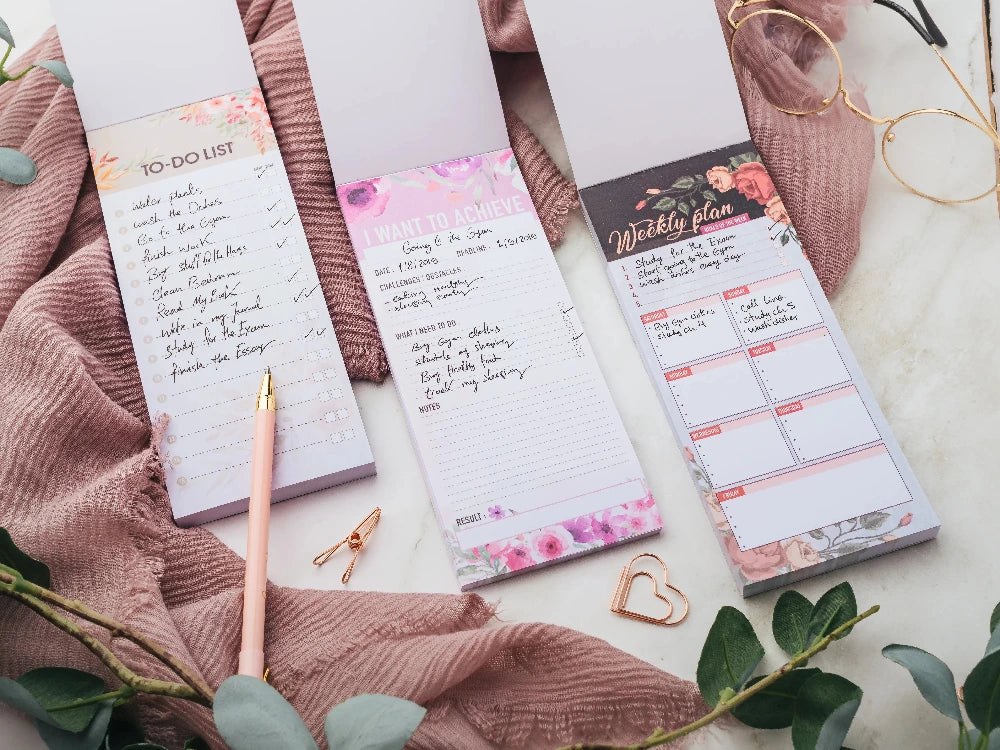 TO-DO LIST
water plants
wash the Dishes
Go to the Gym
finish work
Buy stuff
Clean
Read My Book
write in my Journal
Study for the Exam
finish the Essay
I WANT TO ACHIEVE
Going to the Gym
DATE: 1/8/2019 DEADLINE: 1/9/2019
CHALLENGES / OBSTACLES
eating
sleeping
WHAT I NEED TO DO
Buy Gym clothes
schedule my sleeping
Buy Healthy food
track my sleeping
NOTES
RESULT:
Weekly plan
GOALS OF THE WEEK
1. Study for the Exam
2. Start going to the Gym
3. wash dishes every day
4.
5.
SATURDAY
Buy Gym clothes
Study ch 4
SUNDAY
Call
Study ch 5
wash dishes
MONDAY
TUESDAY
WEDNESDAY
THURSDAY
FRIDAY